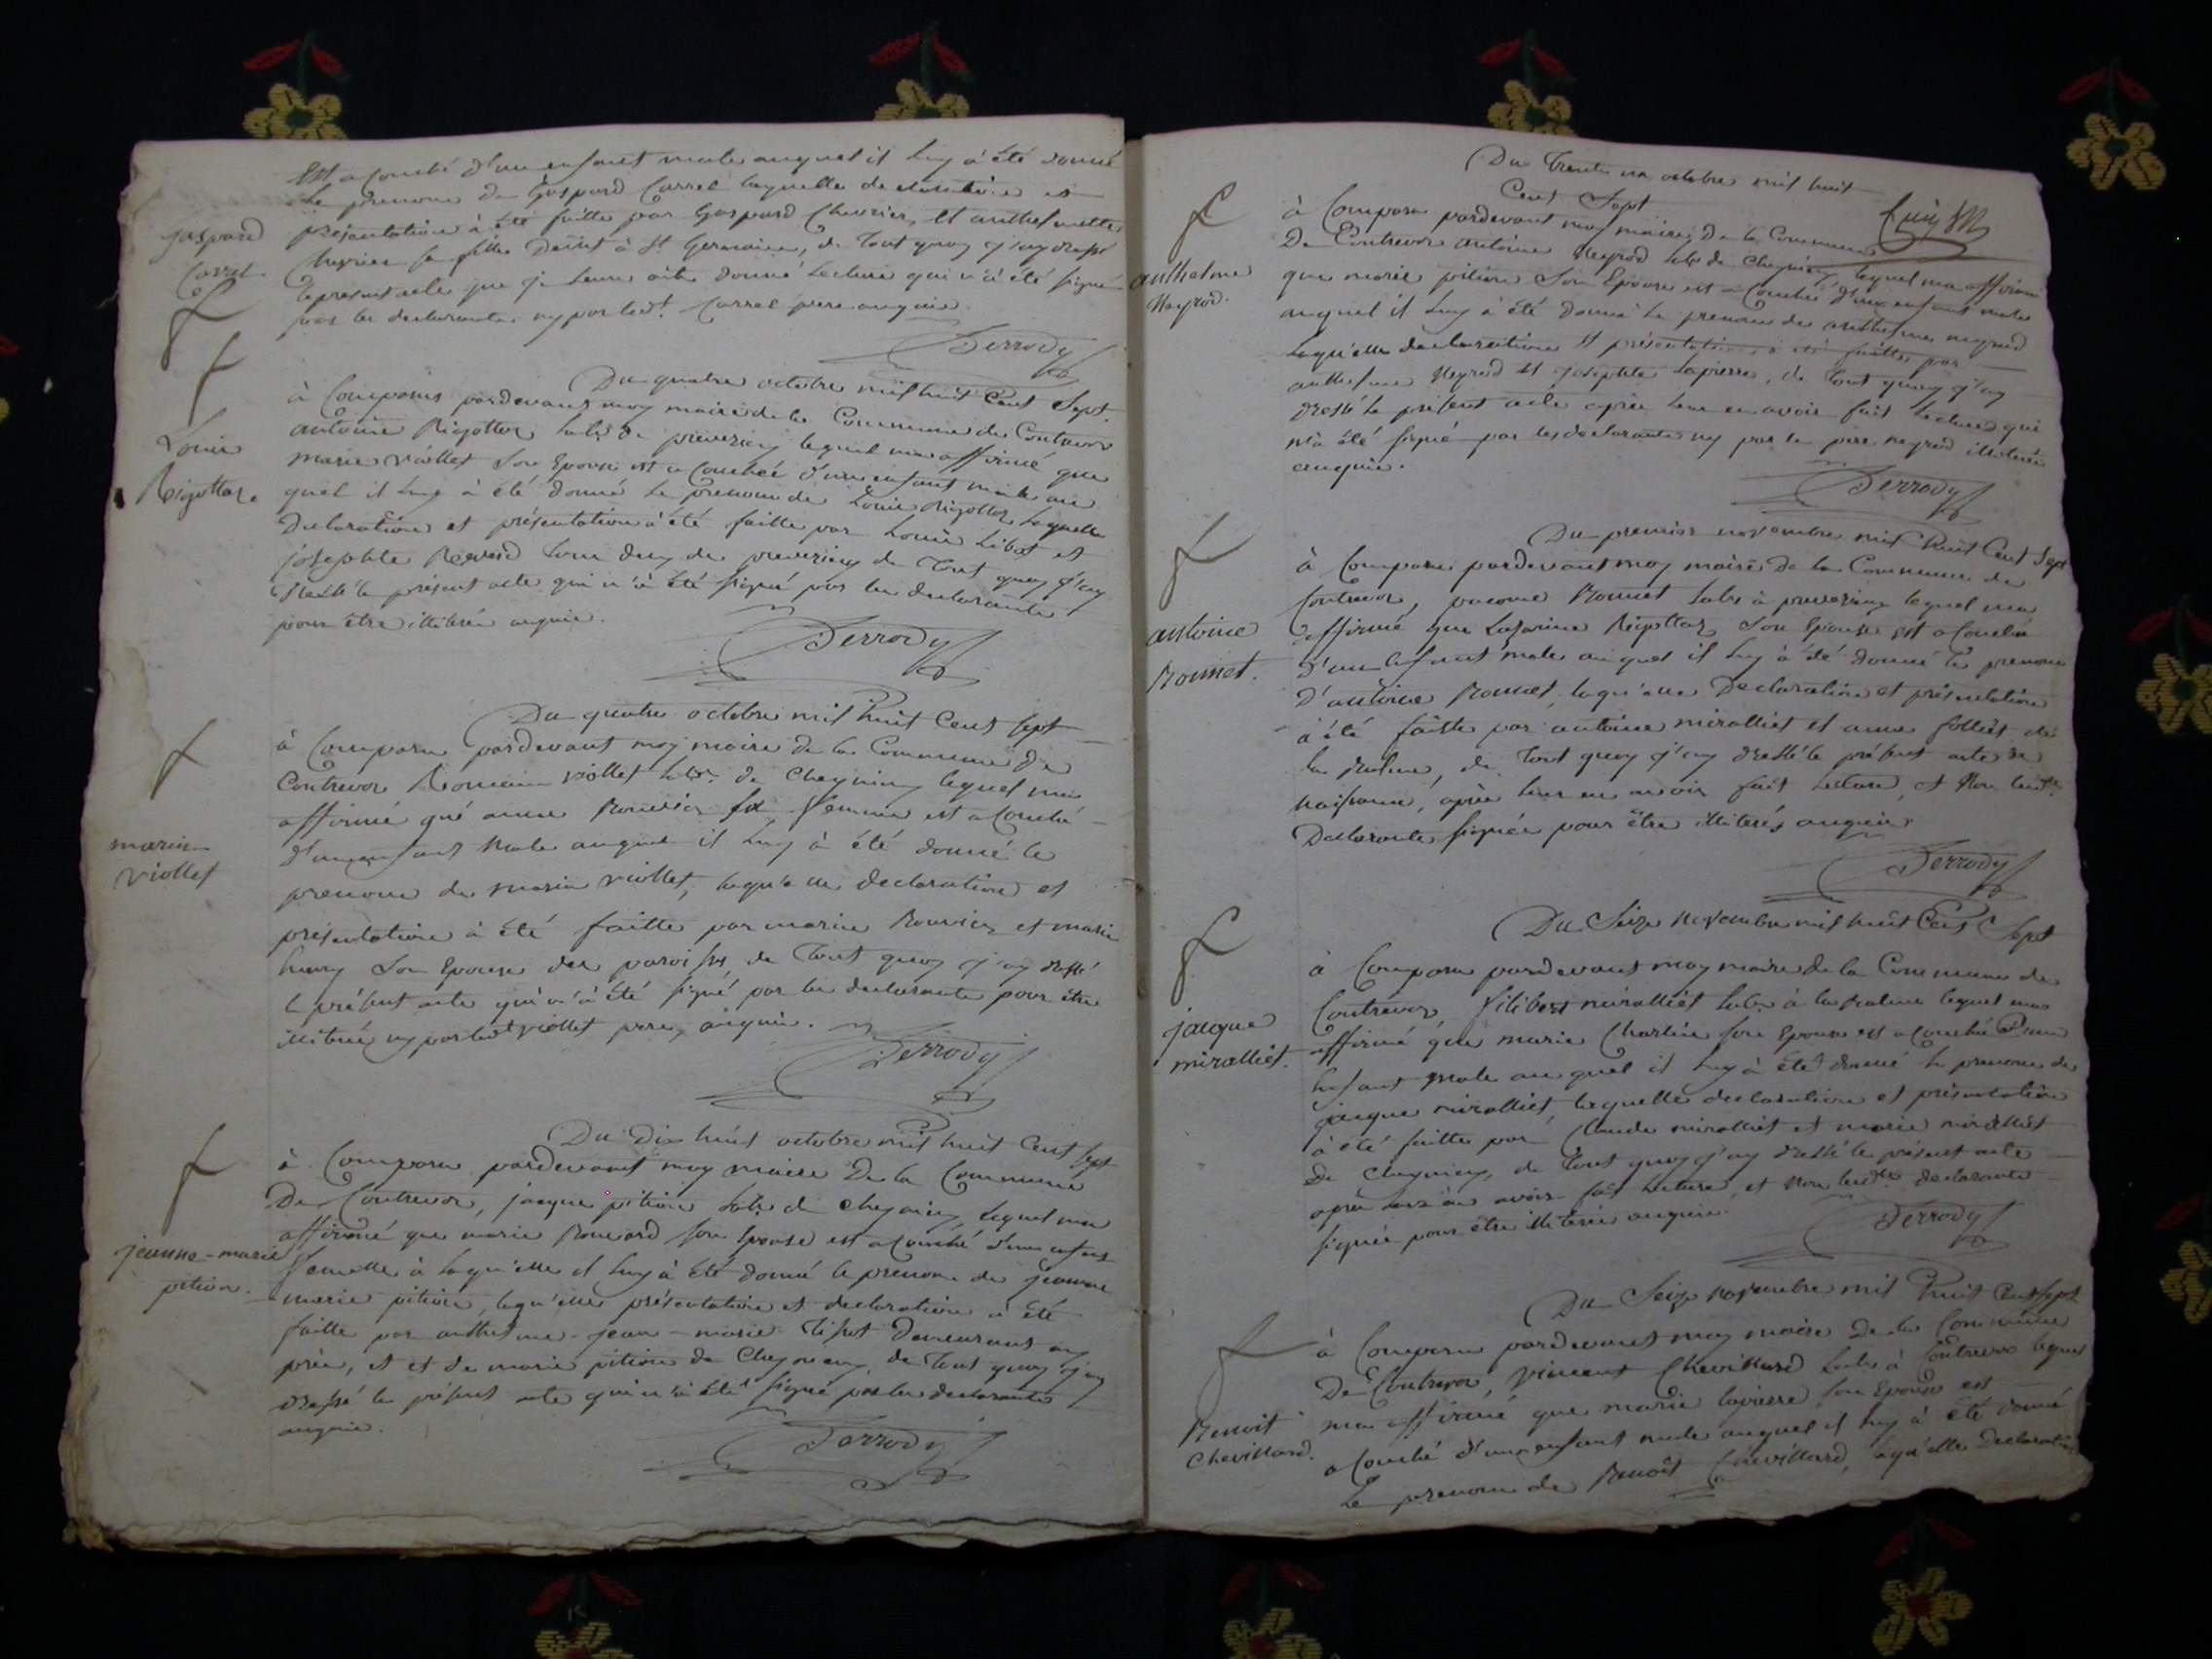 Est acouché d'un enfant male auquel il luy à été donné
le prenom de Gaspard Carrel laquelle declaration et
gaspard
Carrel
présentation à été faitte par Gaspard Chevrier, et anthelmette
Chevrier sa fille de St Germain, de tout quoy j'ay dressé
le présent acte que je leur ait donné lecture qui n'a été signé
par les declarants ny par ledt Carrel pere enquis.
Derrody
Du quatre octobre mil huit Cent Sept
à Comparus pardevant moy maire de la Commune de Contrevoz
Louis
Rigottaz
antoine Rigottaz habt de preveyzieu lequel ma affirmé que
marie viollet Son Epouse est acouchée d'un enfant male au
quel il luy à été donné le prenom de Louis Rigottaz laquelle
Declaration et présentation à été faitte par Louis et
josephte tous deux de preveyzieu de Tout quoy j'ay
dressé le présent acte qui n'à été signé par les declarants
pour être illiterés enquis.
Derrody
Du quatre octobre mil huit Cent Sept
à Comparu pardevant moy maire de la Commune De
Contrevoz Romain viollet habt de Cheynieu lequel ma
affirmé qué anne Rouvier sa femme est acouché
marin
viollet
d'un enfant male auquel il luy à été donné le
prenom de marin viollet, laqu'elle declaration et
présentation à été faitte par marin Rouvier et marie
henry Son Epouse de Tout quoy j'ay dressé
le présent acte qui n'à été signé par les declarants pour être
illiterés ny par ledt viollet pere, enquis.
Derrody
Du Dix huit octobre mil huit Cent Sept
à Comparu pardevant moy maire De la Commune
De Contrevoz, jacque pition habt de Cheynieu lequel ma
affirmé que marie son Epouse est acouché d'un enfant
jeanne-marie
pition.
femelle à laqu'elle il luy à été donné le prenom de jeanne
marie pition, laqu'elle présentation et declaration à été
faitte par anthelme-jean-marie Demeurant au
et et de marie pition de Cheynieu, de Tout quoy j'ay
dressé le présent acte qui n'à été signé par les declarants
enquis.
Derrody
Du Trente un octobre mil huit
Cent Sept
à Comparu pardevant moy maire, De la Commune
De Contrevoz antoine Neyrod habt de Cheynieu, lequel ma affirmé
anthelme
Neyrod.
que marie pition Son Epouse est acouchée d'un enfant male
auquel il luy à été donné le prenom de anthelme neyrod
laqu'elle declaration et présentation à été faitte par
anthelme Neyrod et josephte Lapierre, de Tout quoy j'ay
dressé le présent acte après leur en avoir fait lecture qui
n'à été signé par les declarants ny par le pere neyrod illiterés
enquis.
Derrody
Du premier novembre mil huit Cent Sept
à Comparu pardevant moy maire De la Commune de
Contrevoz, Bonnet habt à preveyzieu lequel ma
antoine
Bonnet.
affirmé que Rigottaz Son Epouse est acouchée
d'un enfant male auquel il luy à été donné le prenom
D'antoine Bonnet, laqu'elle Declaration et présentation
à été faitte par antoine miralliet et anne de
la de Tout quoy j'ay dressé le présent acte de
naissance, après leur en avoir fait lecture, et Non lesdts
Declarants signés pour être illiterés enquis.
Derrody
Du Seize novembre mil huit Cent Sept
à Comparu pardevant moy maire de la Commune de
Contrevoz, filibert miralliet habt à la lequel ma
jacque
miralliet.
affirmé que marie Charlin son Epouse est acouché d'un
Enfant male au quel il luy à été donné le prenom de
jacque miralliet, laquelle declaration et présentation
à été faitte par Claude miralliet et marie miralliet
De Cheynieu, de Tout quoy j'ay dressé le présent acte
après leur en avoir fait lecture, et Non lesdts declarants
signés pour être illiterés enquis.
Derrody
Du Seize novembre mil huit Cent Sept
à Comparu pardevant moy maire De la Commune
De Contrevoz, vincent Chevillard habt à Contrevoz lequel
Benoit
Chevillard.
ma affirmé que marie lapierre, son Epouse est
acouché d'un enfant male auquel il luy à été donné
Le prenom de Benoit Chevillard, laqu'elle Declaration